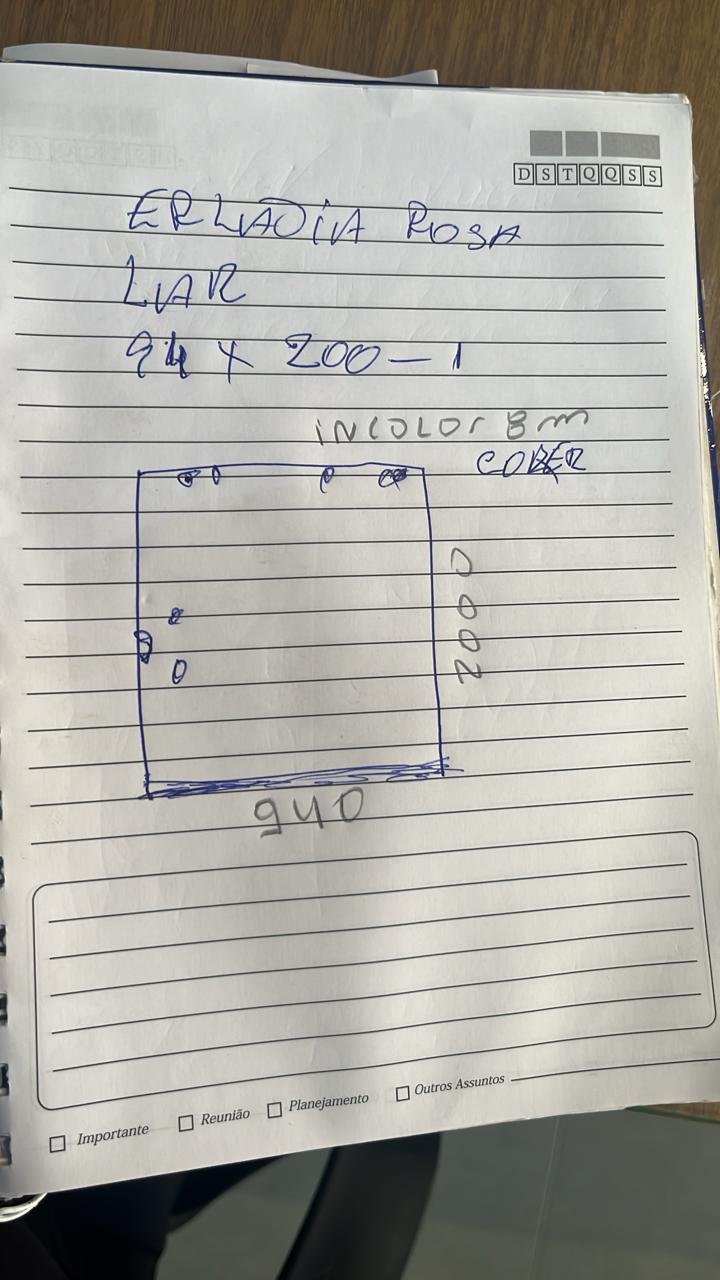 D S T Q Q S S
ERLADIA ROSA
LAR
94 x 200 - 1
INCOLOR 8m
COBER
2000
940
Importante
Reunião
Planejamento
Outros Assuntos